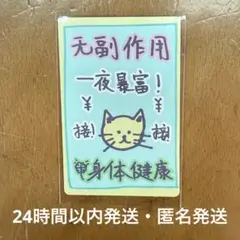 无副作用
一夜暴富!
¥ ¥
接! 接!
身体健康
24時間以内発送・匿名発送